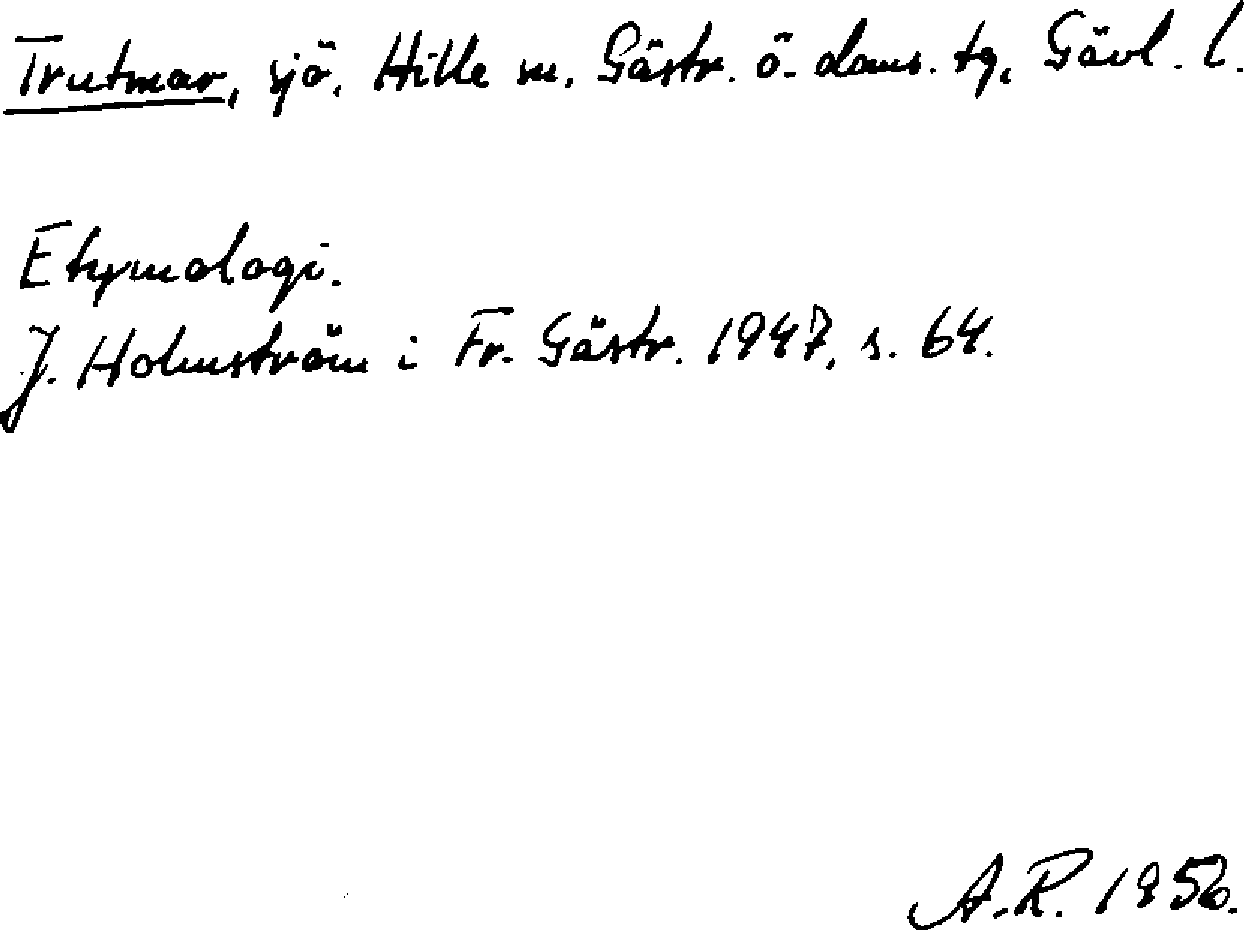 Trutmar, sjö, Hille sn, Gästr. ö. doms. tg, Gävl. l.
Etymologi.
J. Holmström i Fr. Gästr. 1947, s. 64.
A.R. 1956.